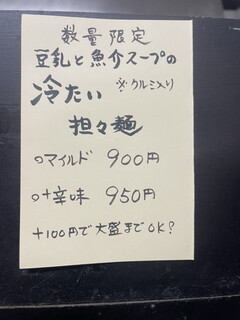 数量限定
豆乳と魚介スープの
冷たい ※クルミ入り
担々麺
○マイルド 900円
○+辛味 950円
+100円で大盛までOK?